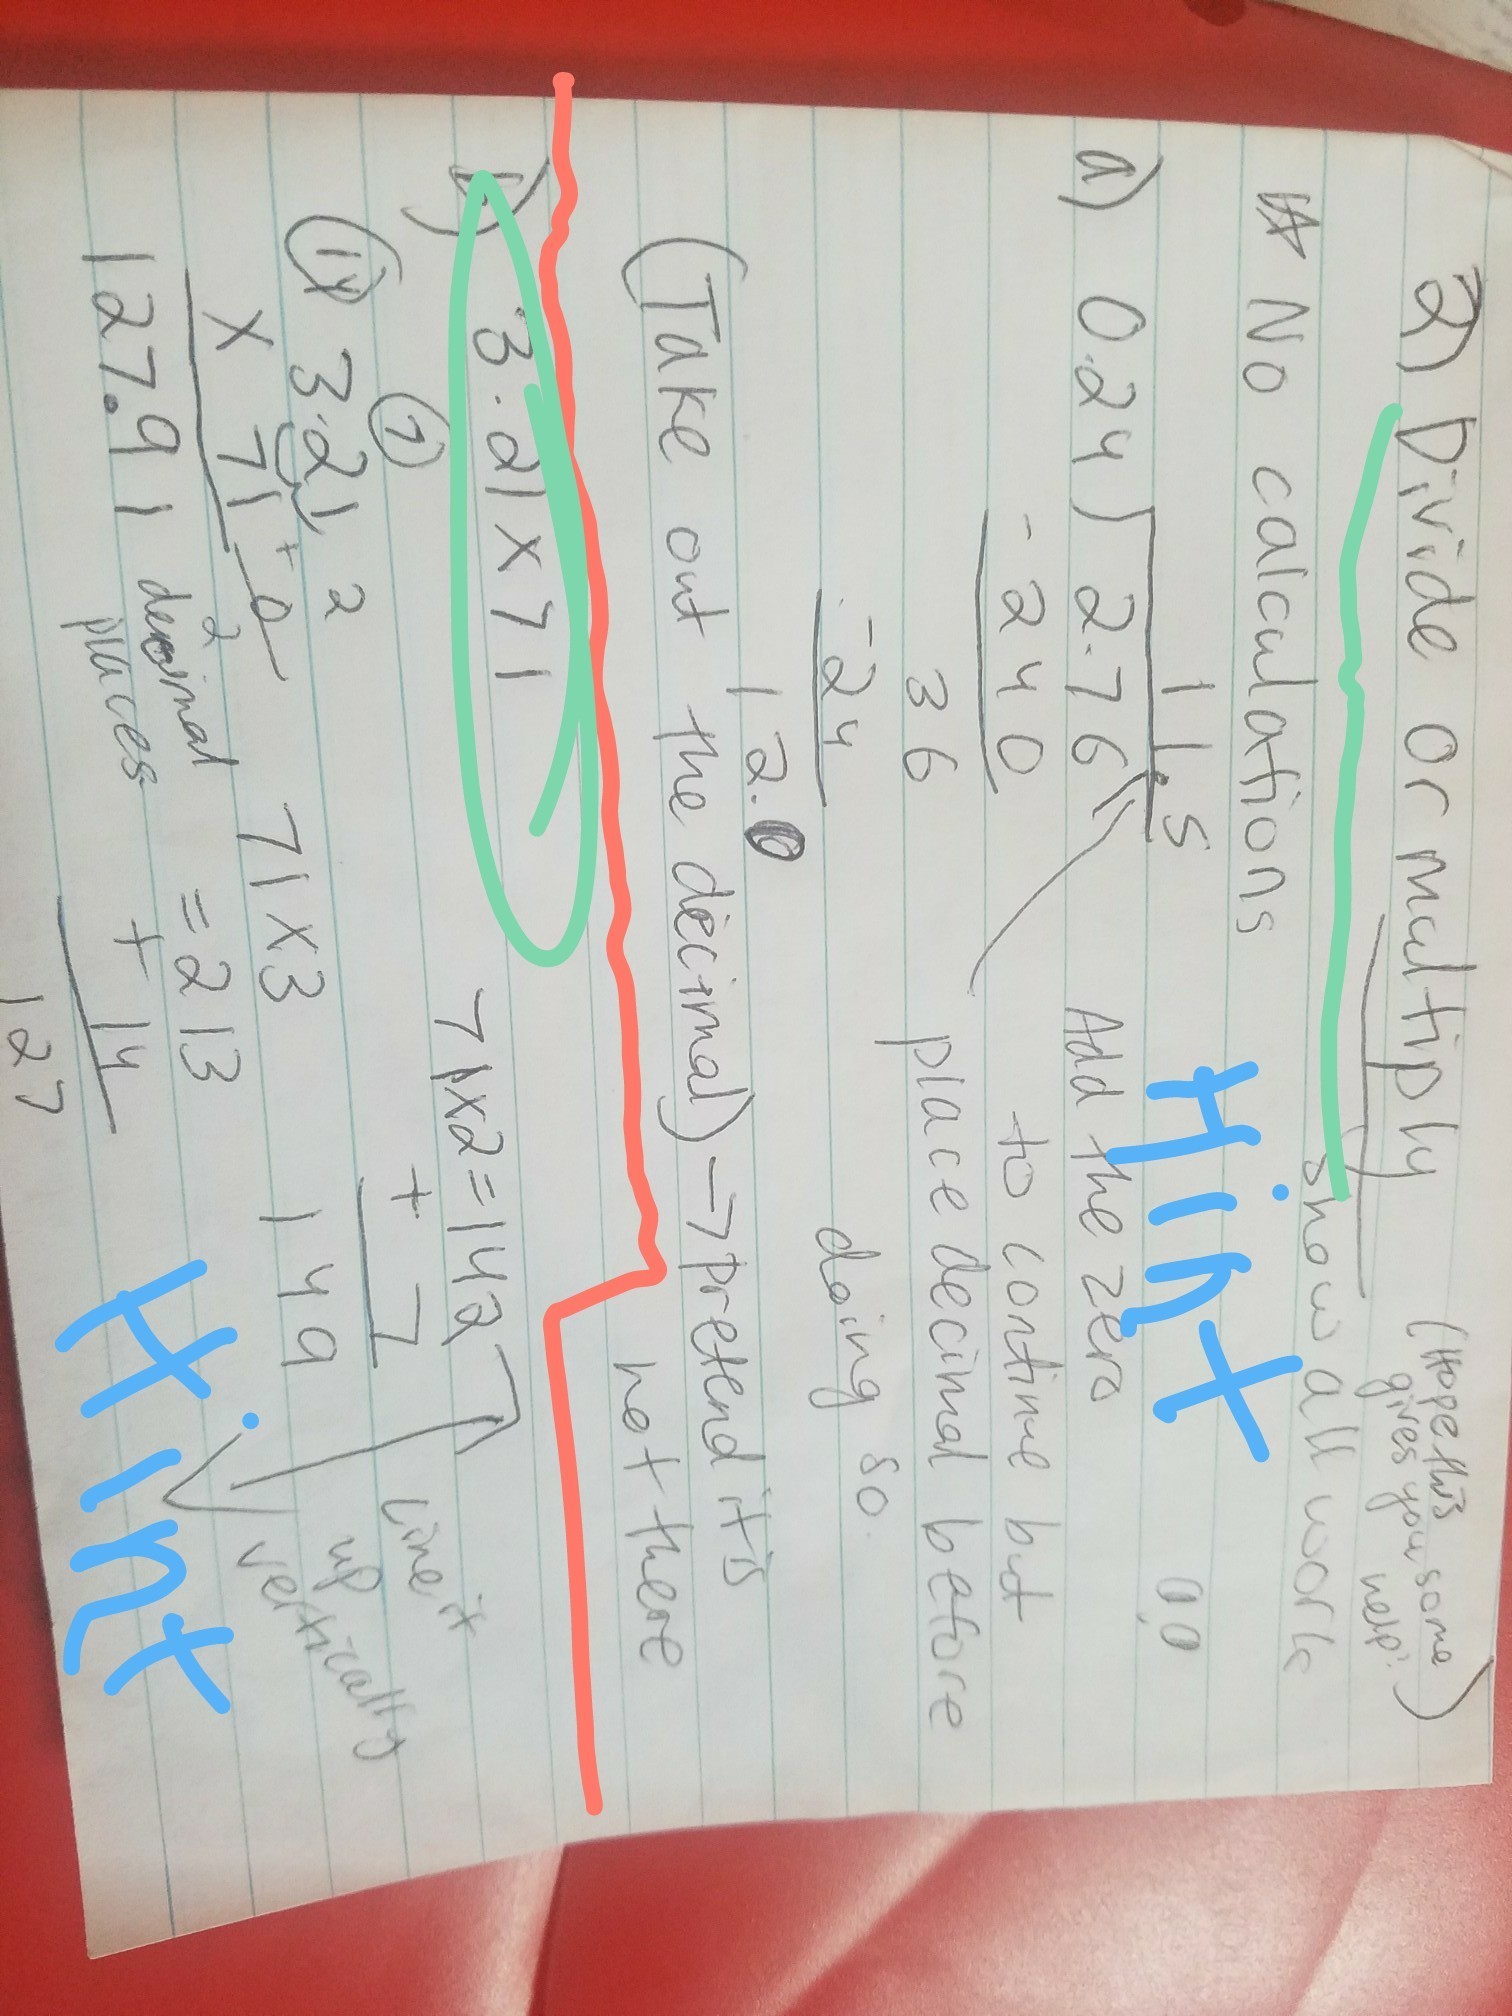 2) Divide or multiply
(Hope this
gives you some
help:)
☆ No calculations
show all work
a) 0.24) 2.76
11.5
0.0
- 240
36
- 24
12.0
Hint
Add the zero
to continue but
place decimal before
doing so.
(Take out the decimal) → pretend it's
not there
b) 3.21 x 71
7
3.21 2
x 71 + 0
2
127.91 decimal
places
71 x 3
= 213
+ 14
127
71x2=142
+ 7
149
Line it
up
vertically
Hint